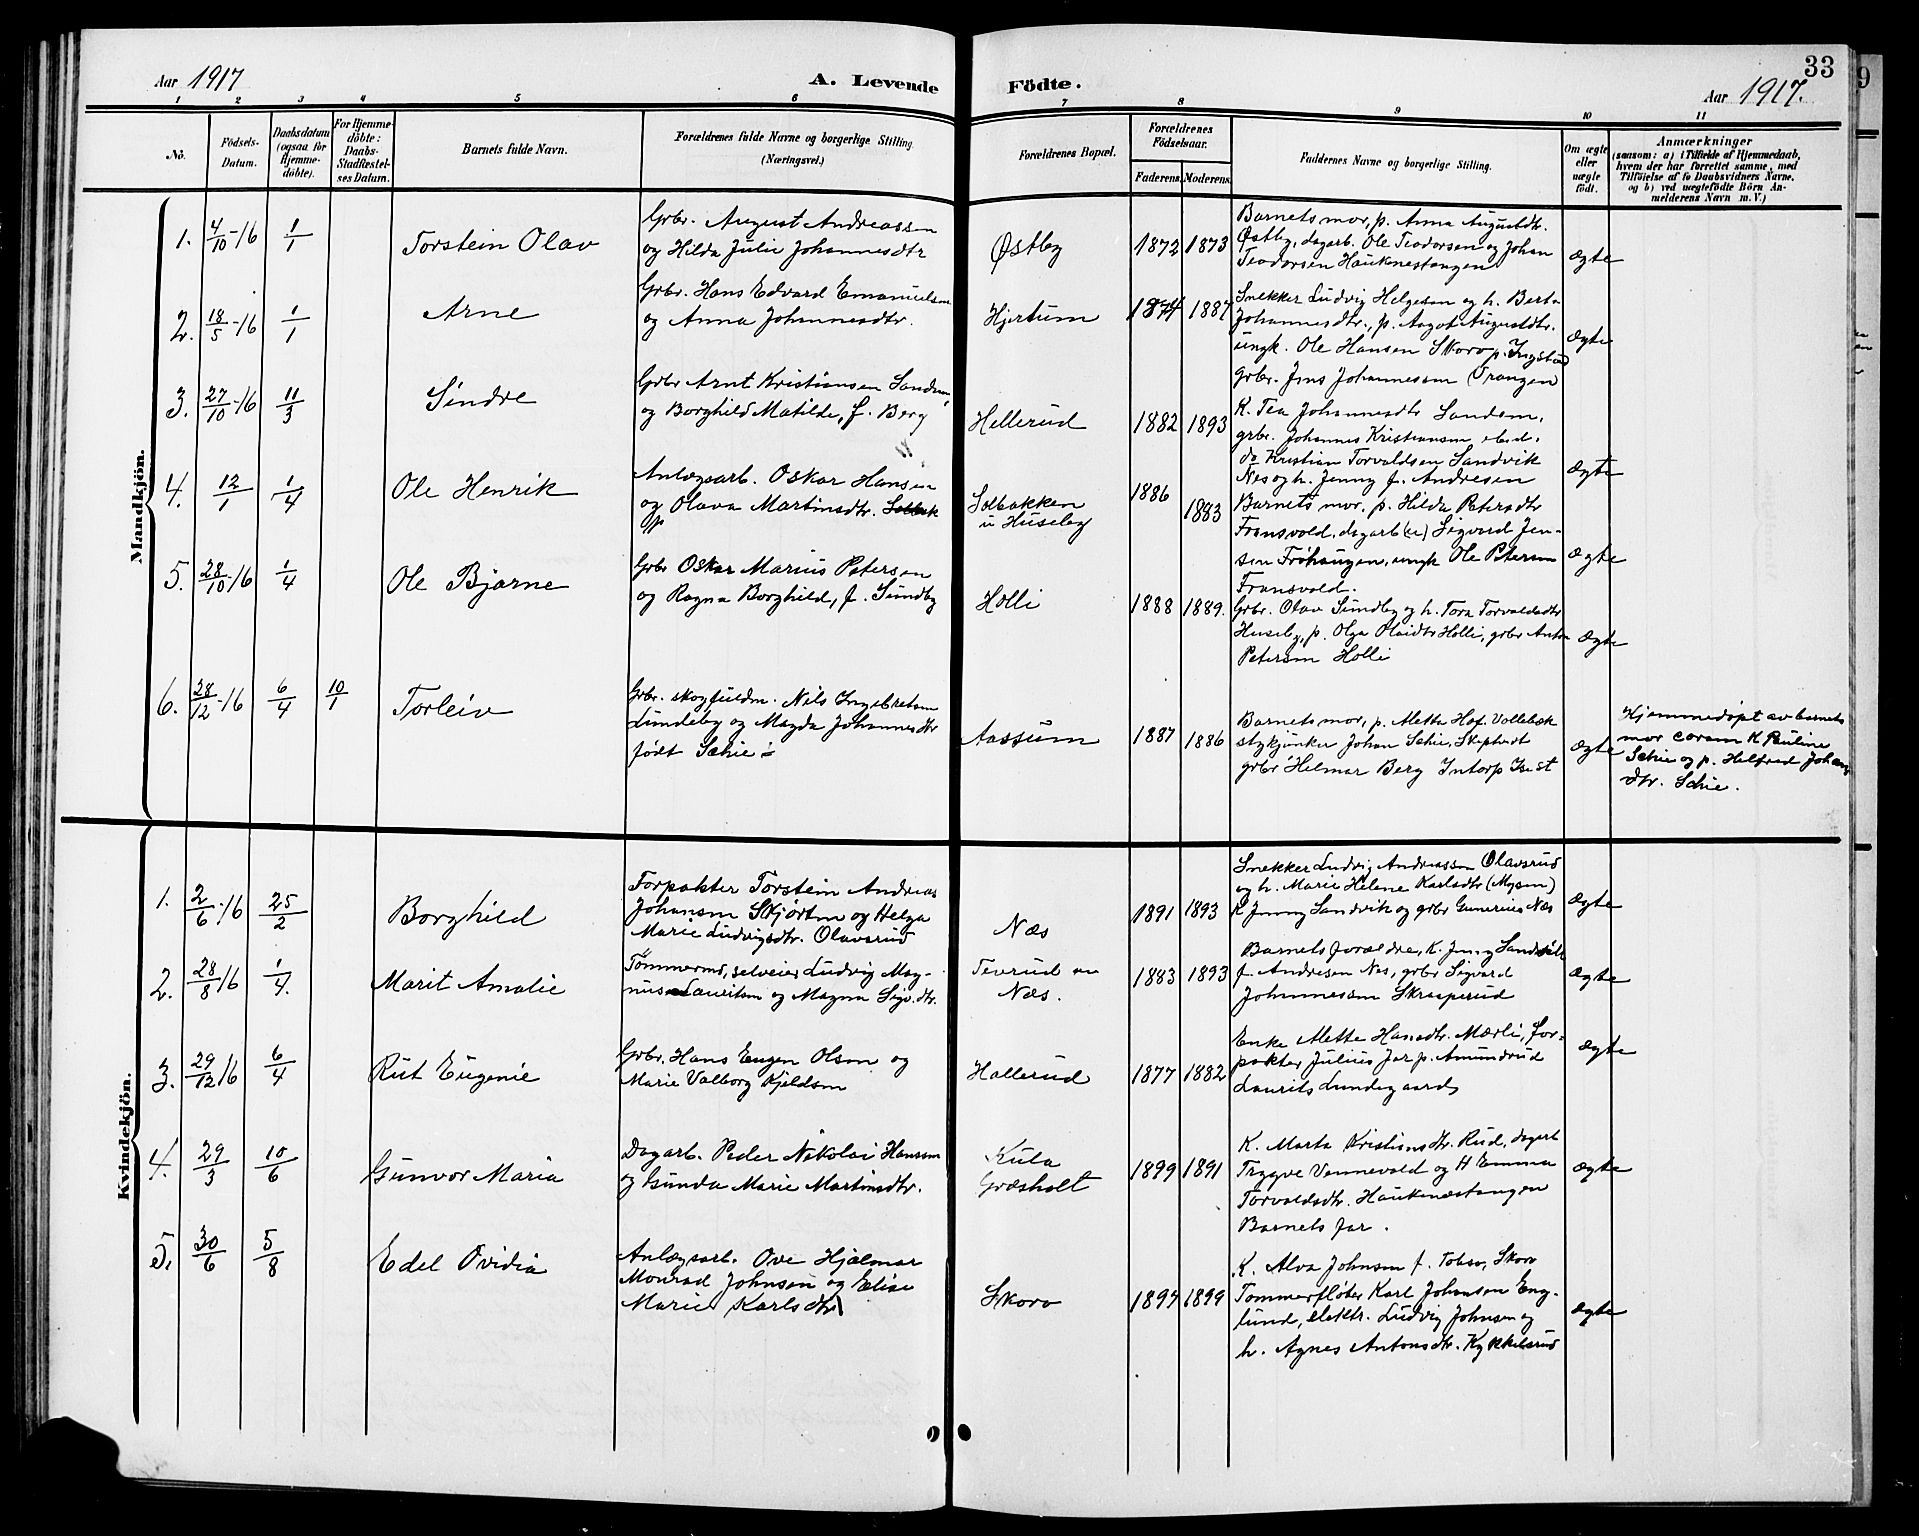 33
Aar 1917
A. Levende
Födte.
Aar 1917.
1 2 3 4 5 6 7 8 9 10 11
No.
Födsels-
Datum.
Daabsdatum
(ogsaa for
Hjemme-
döbte).
For Hjemme
döbte:
Daabs-
Stadfæstel-
ses Datum.
Barnets fulde Navn.
Forældrenes fulde Navne og borgerlige Stilling
(Næringsvei.)
Forældrenes Bopæl.
Forældrenes
Födselsaar.
Faderens. Moderens.
Faddernes Navne og borgerlige Stilling.
Om ægte
eller
uægte
födt.
Anmærkninger
(saasom: a) i Tilfælde af Hjemmedaab,
hvem der har forrettet samme, med
Tilföielse af to Daabsvidners Navne,
og b) ved uægtefödte Börn An-
melderens Navn m. V.)
Mandkjön.
1. 4/10-16 1/1 Torstein Olav
Grbr. August Andreassen
og Hilda Julie Johannesdtr
Østby 1872 1873
Barnets mor, p. Anna Augustdtr.
Østby, dagarb. Ole Teodorsen og Johan
Teodorsen Haukenestangen
ægte
2. 18/5-16 1/1 Arne
Grbr. Hans Edvard Emanuelsen
og Anna Johannesdtr.
Hjertum 1874 1887
Snekker Ludvig Helgesen og h. Berta
Johannesdtr., p. Aagot Augustdtr.
ungk. Ole Hansen Skoro p. Ingstad
grbr. Jens Johannessen Trangen
ægte
3. 27/10-16 11/3 Sindre
Grbr Arnt Kristiansen Sandem
og Borghild Matilde, f. Berg
Hellerud 1882 1893
K. Tea Johannesdtr Sandem,
grbr. Johannes Kristiansen ibid.
do Kristian Torvaldsen Sandvik
Nes og h. Jenny f. Andresen
ægte
4. 12/1 1/4 Ole Henrik
Anlægsarb. Oskar Hansen
og Olava Martinsdtr.
Solbakken
u Huseby
1886 1883
Barnets mor, p. Hilda Petersdtr
Fransvold, dagarb (e) Sigvard Jen-
sen Frøhaugen, ungk Ole Petersen
Fransvold.
ægte
5. 28/10-16 1/4 Ole Bjarne
Grbr Oskar Marius Petersen
og Ragna Borghild, f. Sundby
Holli 1888 1889.
Grbr. Olav Sundby og h. Tora Torvaldsdtr
Huseby, p. Olga Olaidtr Holli, grbr Anton
Petersen Holli
ægte
6. 28/12-16 6/4 10/1 Torleiv
Grbr. skogfuldm. Nils Ingebretsen
Lundeby og Magda Johannesdtr
født Schie
Aassum 1887 1886
Barnets mor, p. Metta Hof. Vollebæk
stykjunker Johan Schie, Skiptvedt
grbr Helmar Berg Intorp
ægte
Hjemmedøpt av barnets
mor coram K Pauline
Schie og p. Helfred Johans
dtr. Schie.
Kvindekjön.
1. 2/6-16 25/2 Borghild
Forpakter Torstein Andreas
Johansen Skjørten og Helga
Marie Ludvigsdtr. Olavsrud
Næs 1891 1893
Snekker Ludvig Andreassen Olavsrud
og h. Marie Helene Karlsdtr (Mysen)
K Jenny Sandvik og grbr Gunerius Næs
ægte
2. 28/8 16 1/4. Marit Amalie
Tømmermd, selveier Ludvig Mag-
nus Lauritsen og Magna Sigv. dtr.
Teverud u
Næs.
1883 1893
Barnets forældre, K. Jenny Sandvik
f. Andresen Nes, grbr Sigvard
Johannessen Skraaperud
ægte
3. 29/12 16 6/4 Rut Eugenie
Grbr. Hans Eugen Olsen og
Marie Valborg Kjeldsen
Hallerud 1877 1882
Enke Mette Hansdtr. Mærli, for-
pakter Julius Jar p. Amundrud
Laurits Lundegaard
ægte
4. 29/3 10/6 Gunvor Maria
Dagarb. Peder Nikolai Hansen
og Gunda Marie Martinsdtr.
Kula
Græsholt
1899 1891
K. Marta Kristiansdtr. Rud, dagarb
Trygve Vannevold og H Emma
Torvaldsdtr. Haukenæstangen
Barnets far.
ægte
5. 30/6 5/8 Edel Ovidia
Anlægsarb. Ove Hjalmar
Monrad Johnsen og Elise
Marie Karlsdtr
Skoro 1897 1899
K. Alva Johnsen f. Tobsø, Skoro
Tømmerfløter Karl Johansen Eng-
lund, elektr. Ludvig Johnsen og
h. Agnes Antonsdtr. Kykkelsrud
ægte